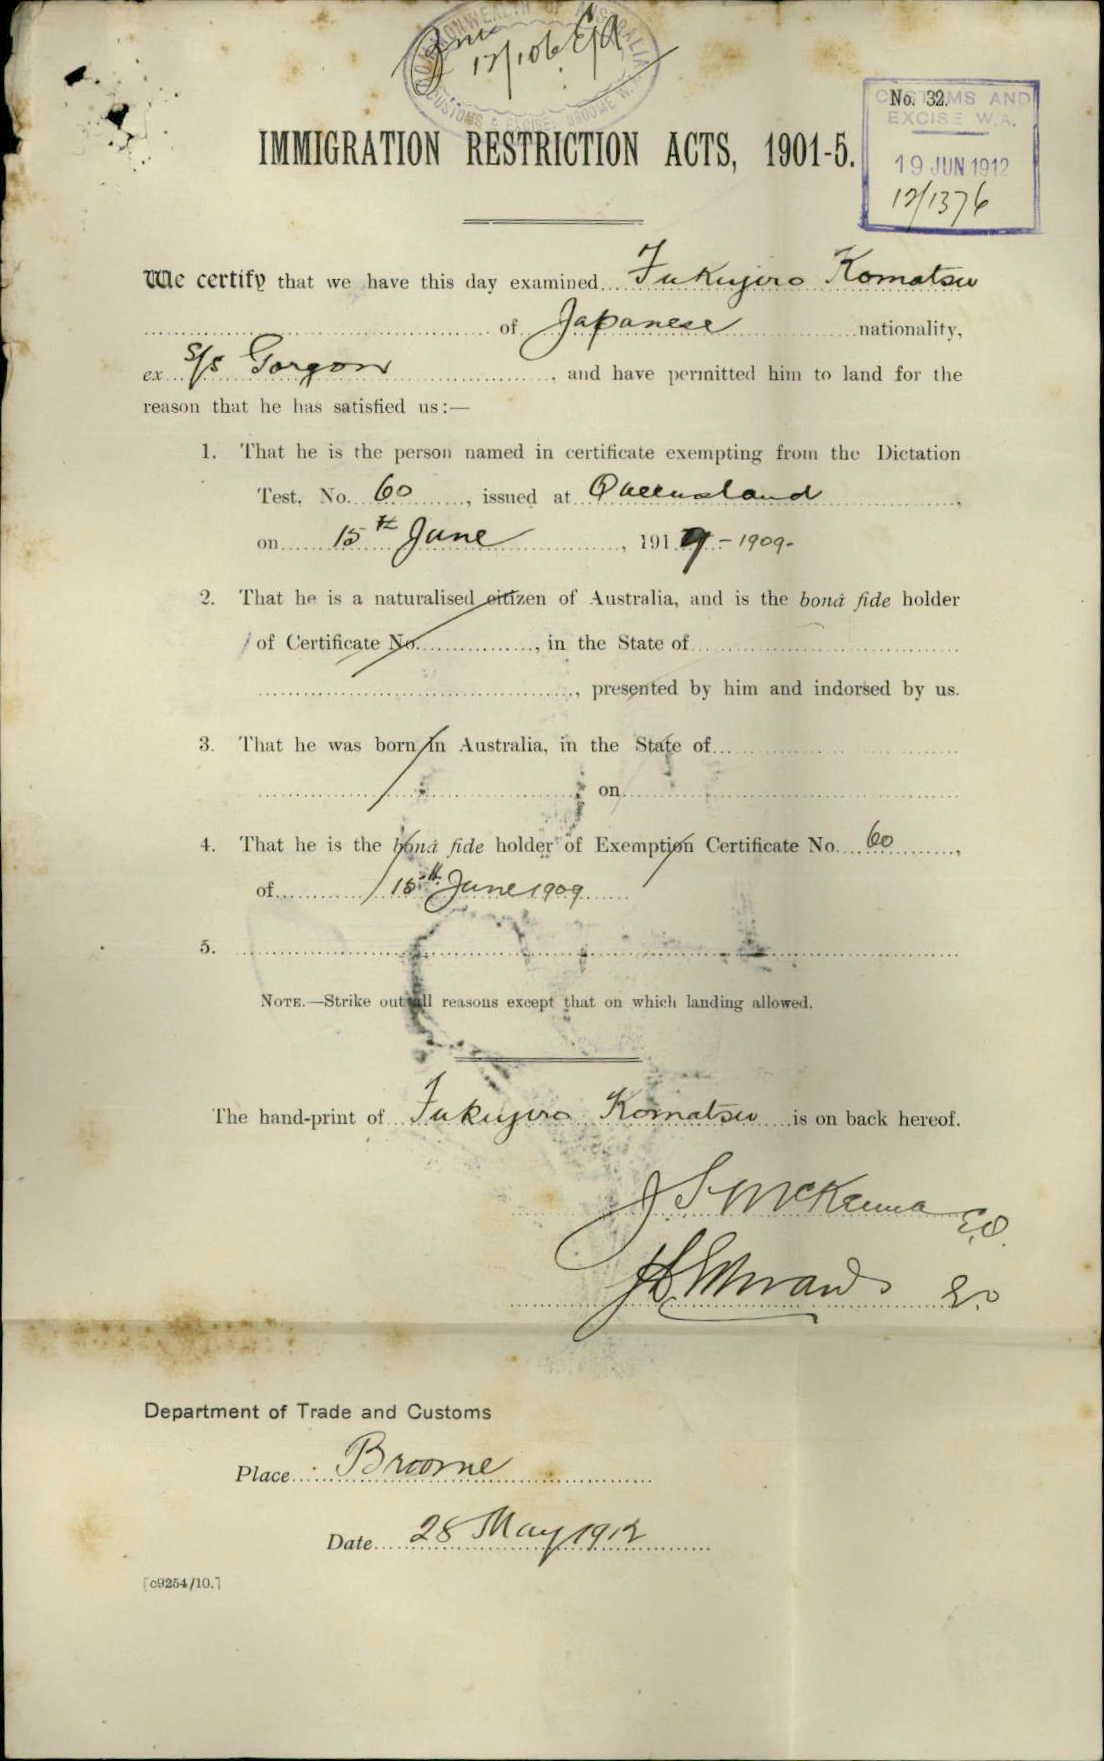 COMMONWEALTH OF AUSTRALIA
CUSTOMS & EXCISE, BROOME W.A.
12/106
No. 32.
CUSTOMS AND
EXCISE W.A.
19 JUN 1912
12/1376
IMMIGRATION RESTRICTION ACTS, 1901-5.
We certify that we have this day examined Fukujiro Komatsu
of Japanese nationality,
ex S/S Gorgon, and have permitted him to land for the
reason that he has satisfied us:—
1. That he is the person named in certificate exempting from the Dictation
Test, No. 60, issued at Queensland,
on 15th June, 1919 - 1909-
2. That he is a naturalised citizen of Australia, and is the bonâ fide holder
of Certificate No., in the State of
, presented by him and indorsed by us.
3. That he was born in Australia, in the State of
, on
4. That he is the bonâ fide holder of Exemption Certificate No. 60,
of 15th June 1909
5.
NOTE.—Strike out all reasons except that on which landing allowed.
The hand-print of Fukujiro Komatsu is on back hereof.
J S McKenna E.O.
Edwards E.O
Department of Trade and Customs
Place Broome
Date 28 May 1912
[C9254/10.]